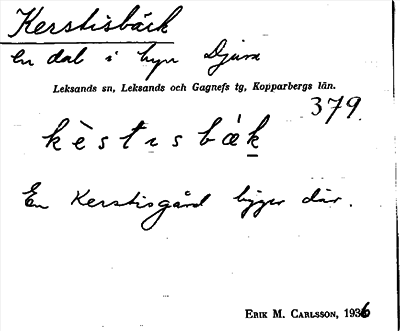 Kerstisbäck
en dal i byn Djura
Leksands sn, Leksands och Gagnefs tg, Kopparbergs län.
379.
kèstısbäk
En Kerstisgård ligger där.
ERIK M. CARLSSON, 1936